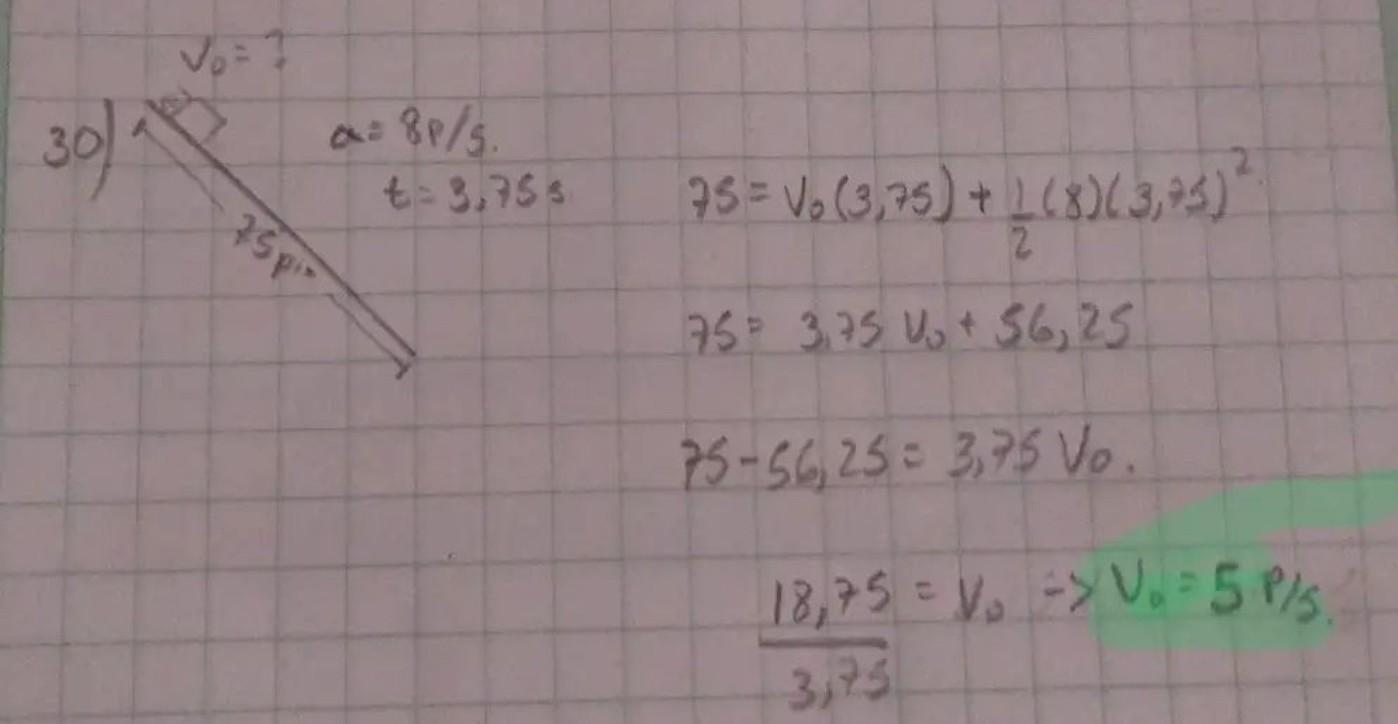 V₀ = ?
30)
a = 8p/s.
t = 3,75 s
75 pin
75 = V₀(3,75) + 1/2 (8)(3,75)²
75 = 3,75 V₀ + 56,25
75 - 56,25 = 3,75 V₀.
18,75/3,75 = V₀ -> V₀ = 5 P/s.